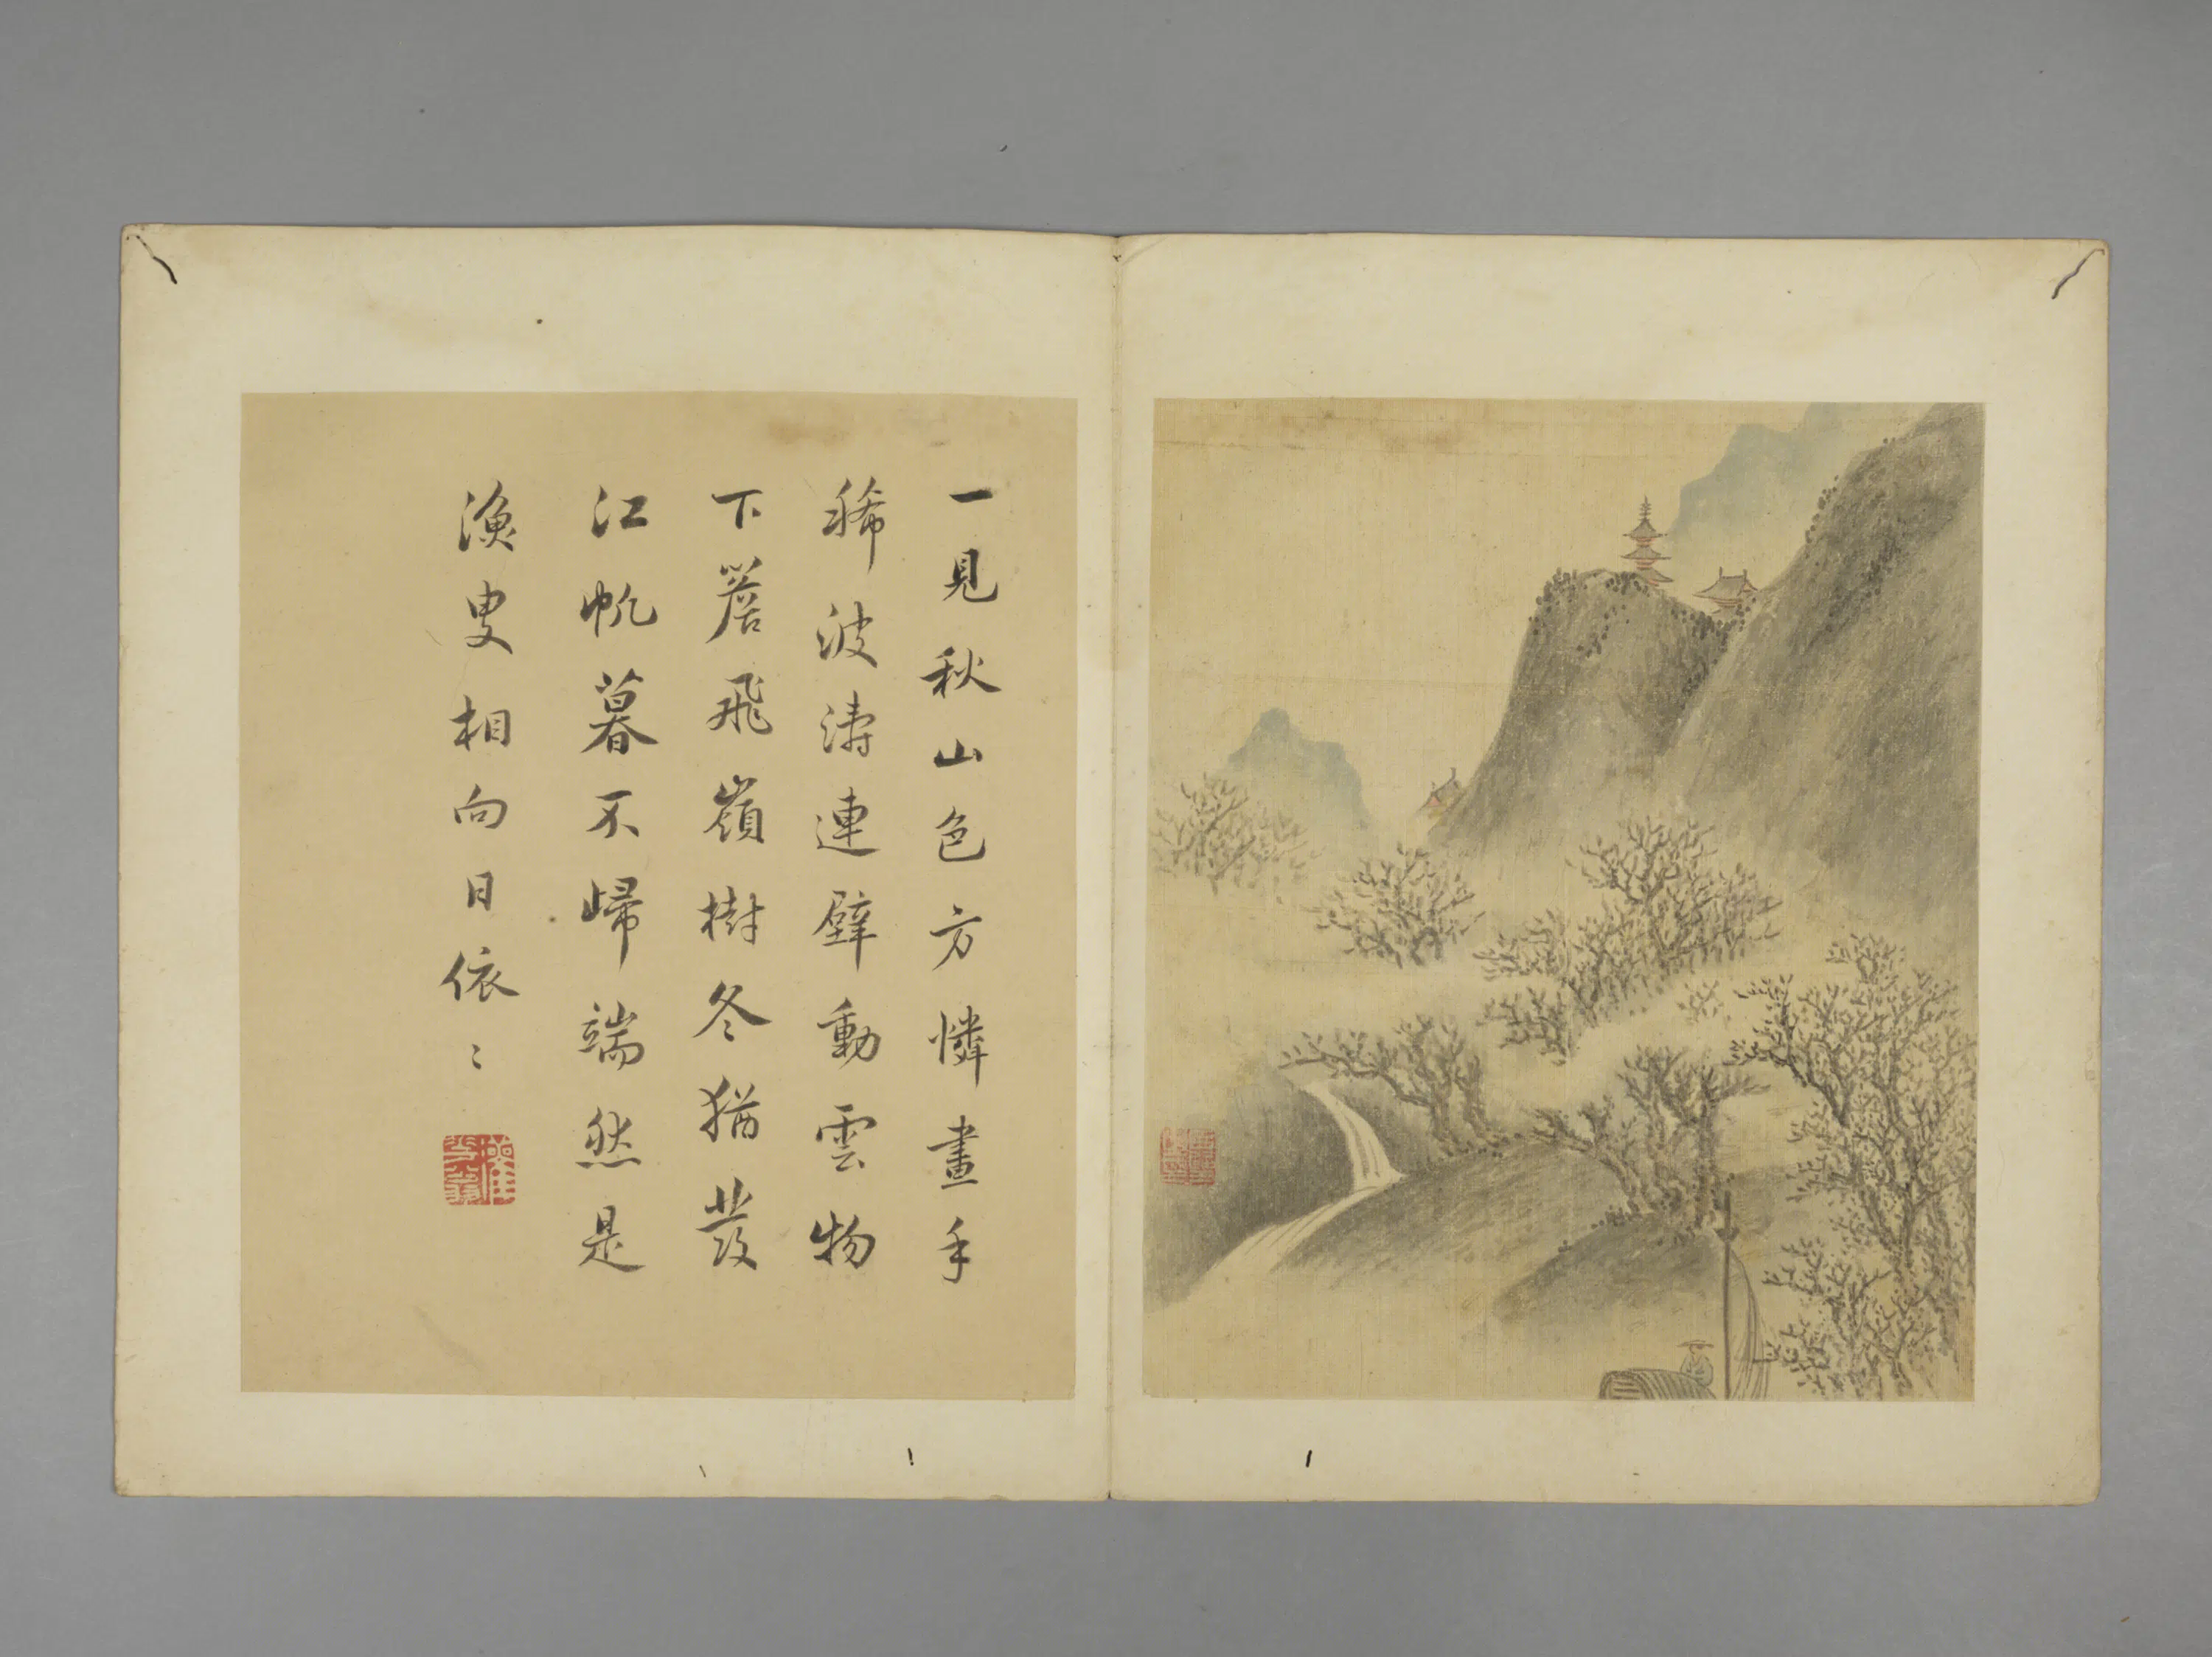 一見秋山色方憐畫手
稀波濤連壁動雲物
下簷飛嶺樹冬猶發
江帆暮不歸端然是
漁叟相向日依〻